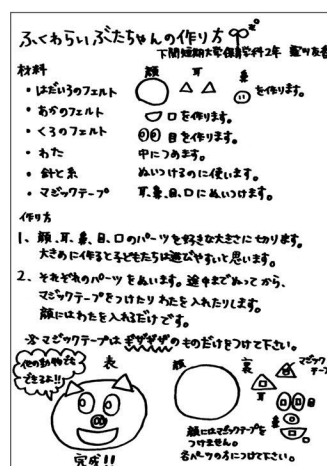 ふくわらいぶたちゃんの作り方
下関短期大学保育学科2年
材料 顔 耳 鼻
・はだいろのフェルト を作ります。
・あかのフェルト 口を作ります。
・くろのフェルト 目を作ります。
・わた 中につめます。
・針と糸 ぬいつけるのに使います。
・マジックテープ 耳、鼻、目、口にぬいつけます。
作り方
1、顔、耳、鼻、目、口のパーツを好きな大きさに切ります。
大きめに作ると子どもたちは遊びやすいと思います。
2、それぞれのパーツをぬいます。途中までぬってから、
マジックテープをつけたりわたを入れたりします。
顔にはわたを入れるだけです。
※マジックテープはギザギザのものだけをつけて下さい。
他の動物でもできるよ!!
表
顔
裏
マジックテープ
耳
目
鼻
口
顔にはマジックテープを
つけません。
各パーツのうらにつけて下さい。
完成!!